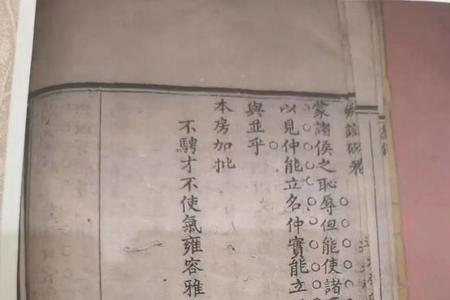 蒙諸侯之恥辱但能使諸
以見仲能立名仲實能立
與並乎
本房加批
不騁才不使氣雍容雅